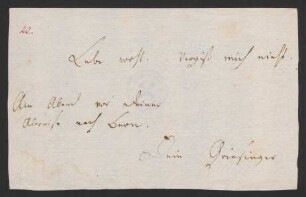 22.
Lebe wohl. Vergiß mich nicht.
Am Abend vor deiner
Abreise nach Bonn.
Dein Griesinger